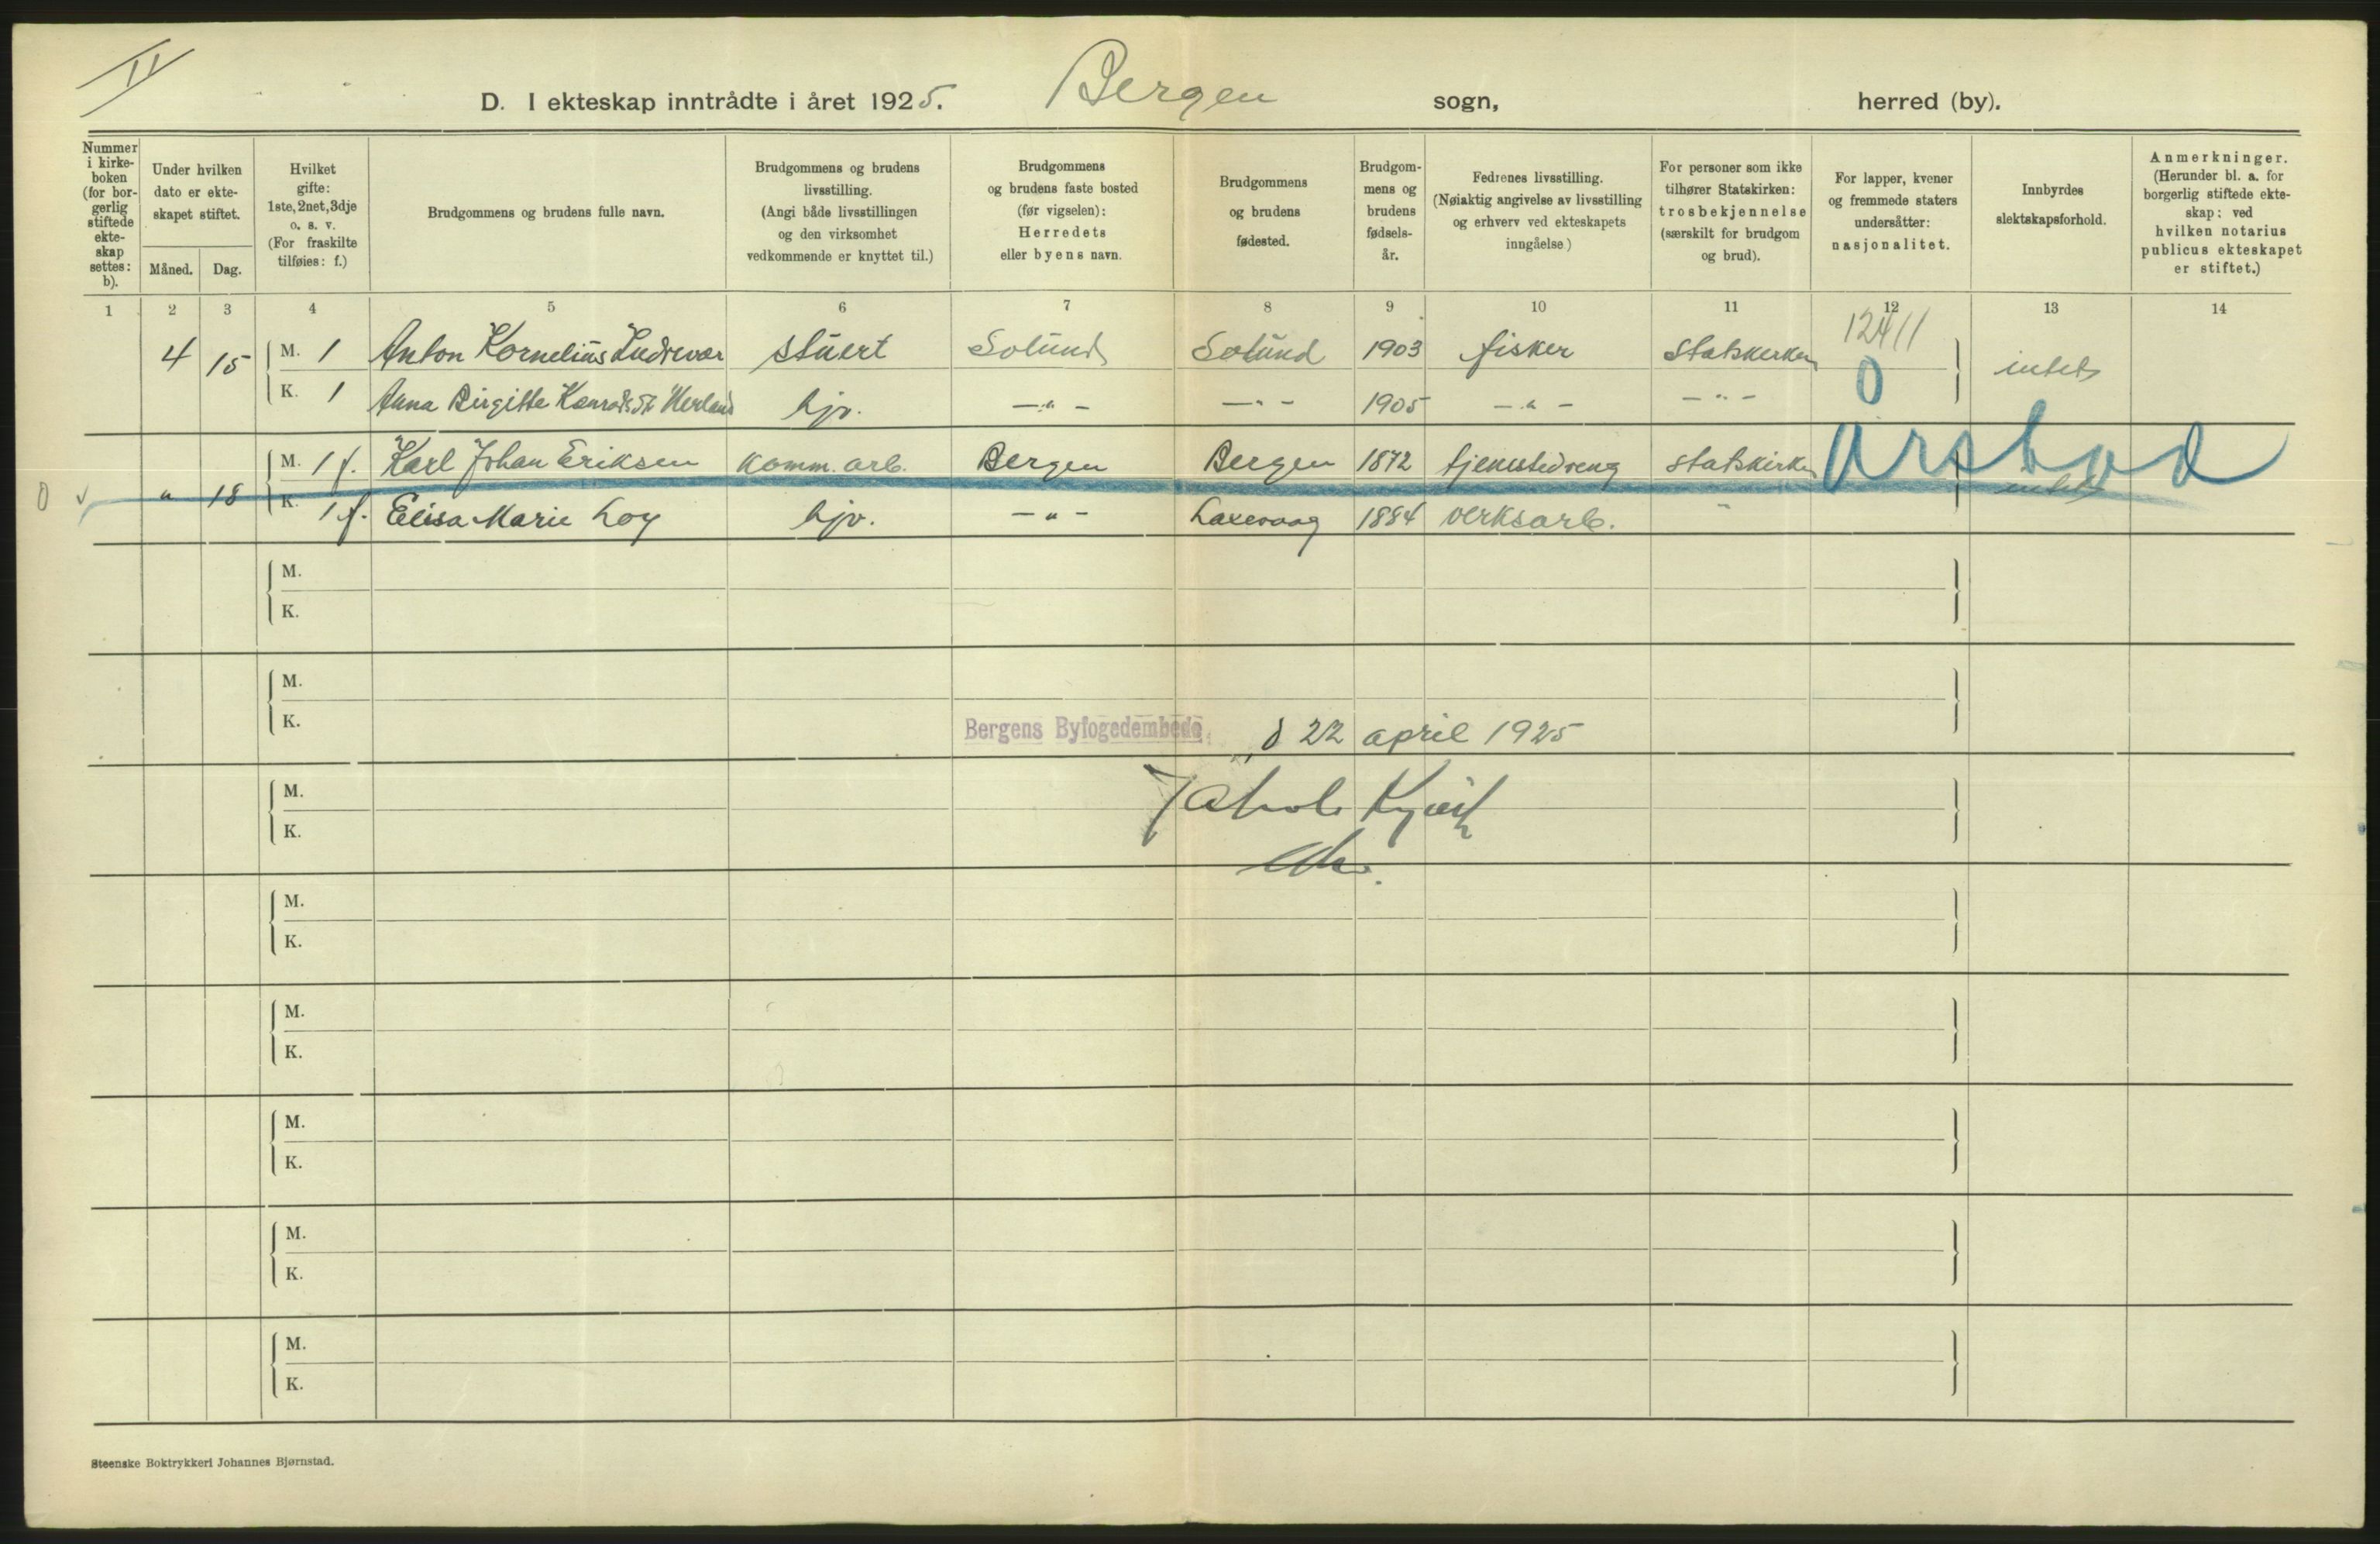 II
D. I ekteskap inntrådte i året 1925. Bergen sogn, herred (by).
Nummer i kirkeboken (for borgerlig stiftede ekteskap settes: b).
Under hvilken dato er ekteskapet stiftet.
Måned. Dag.
Hvilket gifte: 1ste, 2net, 3dje o. s. v. (For fraskilte tilføies: f.)
Brudgommens og brudens fulle navn.
Brudgommens og brudens livsstilling. (Angi både livsstillingen og den virksomhet vedkommende er knyttet til.)
Brudgommens og brudens faste bosted (før vigselen): Herredets eller byens navn.
Brudgommens og brudens fødested.
Brudgommens og brudens fødselsår.
Fedrenes livsstilling. (Nøiaktig angivelse av livsstilling og erhverv ved ekteskapets inngåelse)
For personer som ikke tilhører Statskirken: trosbekjennelse (særskilt for brudgom og brud).
For lapper, kvener og fremmede staters undersåtter: nasjonalitet.
Innbyrdes slektskapsforhold.
Anmerkninger. (Herunder bl. a. for borgerlig stiftede ekteskap: ved hvilken notarius publicus ekteskapet er stiftet.)
1 2 3 4 5 6 7 8 9 10 11 12 13 14
12411
4 15 M. 1 Anton Kornelius Ludvevær stuert Solund Solund 1903 fisker Statskirken 0 intet
K. 1 Anna Birgitte Konradsdt Herland hjv. — " — — " — 1905 — " — — " —
M. 1 f. Karl Johan Eriksen Komm. arb. Bergen Bergen 1872 tjenestedreng statskirken Årstad
0 v " 18 intet
K. 1 f. Elisa Marie Loy hjv. — " — Laxevaag 1884 verksarb. "
M.
K.
M.
K.
Bergens Byfogedembede, d 22 april 1925
M.
Jakob Kjvik
K.
M.
K.
M.
K.
M.
K.
M.
K.
M.
K.
Steenske Boktrykkeri Johannes Bjørnstad.